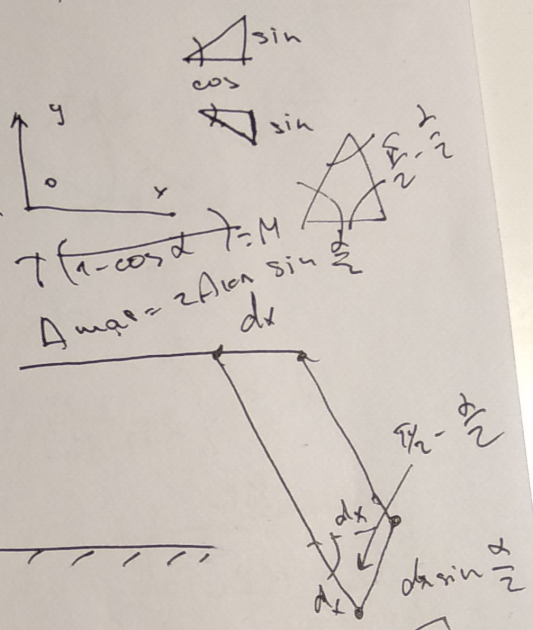 sin
cos
y
sin
0
x
π/2 - α/2
α/2
T(1-cos α) = M
sin α/2
dx
π/2 - α/2
dx
dx
dx sin α/2